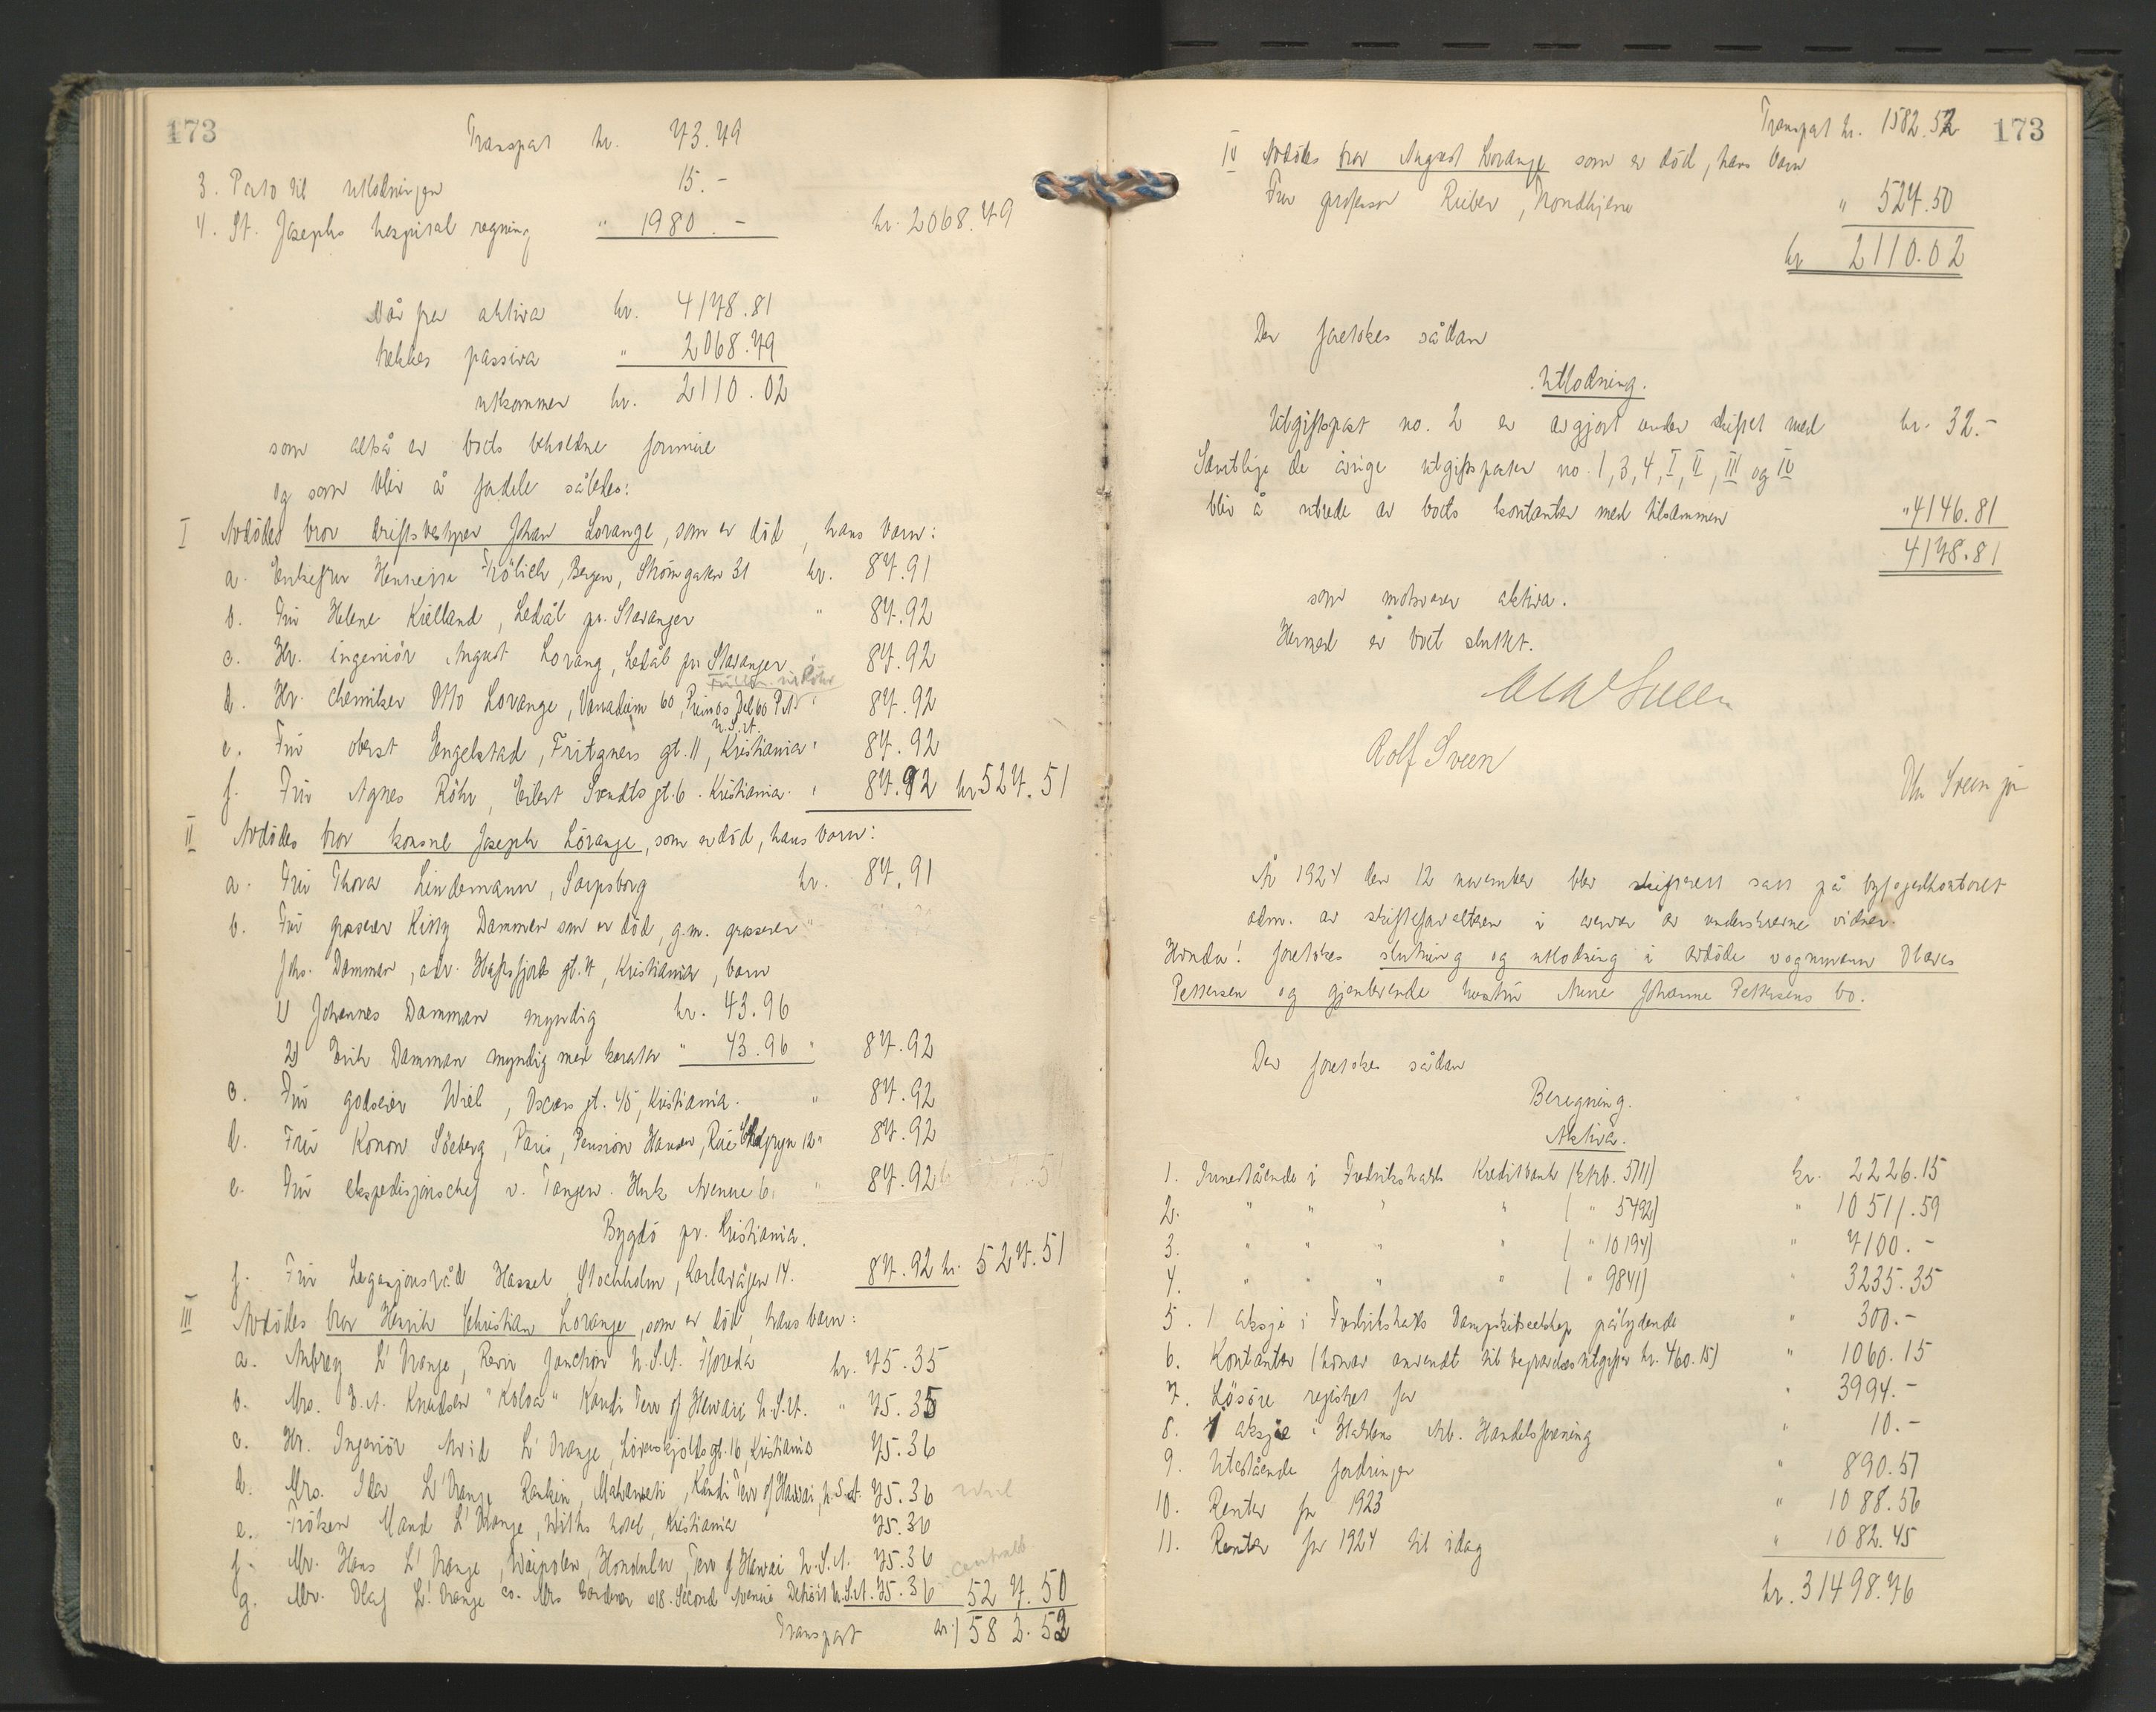 173
Transport kr. 73.79
3. Porto til utlodningen 15.-
4. St. Josephs hospital regning " 1980.- kr. 2068.79
Når fra aktiva kr. 4178.81
trekkes passiva " 2068.79
utkommer kr. 2110.02
som altså er boets beholdne formue
og som blir å fordele således:
I Avdödes bror driftsbestyrer Johan Lorange, som er död, hans barn:
a. Enkefru Henriette Frölich, Bergen, Strömgaten 31 kr. 87.91
b. Fru Helene Kielland, Ledål pr. Stavanger " 87.92
c. Hr. ingeniör August Lorang, Ledål pr. Stavanger " 87.92
d. Hr. chemiker Otto Lorange, Vanadium 60, Primos Del 60 Pa U.S.A. " 87.92
e. Fru oberst Engelstad, Fritzners gt. 11, Kristiania " 87.92
f. Fru Agnes Röhr, Eilert Sundts gt. 6. Kristiania. " 87.92 kr 527.51
II Avdödes bror konsul Joseph Lorange, som er död, hans barn:
a. Fru Thora Lindemann, Sarpsborg kr. 87.91
b. Fru grosserer Kitty Dammen som er död, g.m. grosserer "
Johs. Damman, adr. Hafrsfjords gt. 7, Kristiania, barn
1) Johannes Damman myndig kr. 43.96
2) Erik Damman myndig med kurator " 43.96 " 87.92
c. Fru godseier Wiel, Oscars gt. 45, Kristiania. " 87.92
d. Fru Konow Söeberg, Paris, Pension Hawes, Rue 12 " 87.92
e. Fru ekspedisjonschef v. Tangen. Huk Avenue 6, " 87.92
Bygdö pr. Kristiania.
f. Fru Legasjonsråd Hassel Stockholm, Karlavägen 14. 87.92 kr. 527.51
III Avdödes bror Henrik Christian Lorange, som er död, hans barn:
a. Aubrey L'Orange, Junction U.S.A. Florida kr. 75.35
b. Mrs. E.A. Knudsen "Koloa" Kauai Terr of Hawaii U.S.A. " 75.35
c. Hr. Ingeniör Arvid L'Orange, Lövenskjoldsgt. 16, Kristiania 75.36
d. Mrs. Ida L'Orange Rankin, Kauai Terr of Hawai, U.S.A. 75.36
e. Fröken Maud L'Orange, Withs hotel, Kristiania 75.36
f. Mr. Hans L'Orange, Waipahu, Honolulu, Terr of Hawai U.S.A. 75.36
g. Mr. Olaf L'Orange co. Mrs Gardener 618. Second Avenue Detroit U.S.A. 75.36 527.50
Transport kr. 1582.52
Transport kr. 1582.52 173
IV Avdödes bror August Lorange som er död, hans barn
Fru professor Riiber, Trondhjem " 527.50
kr 2110.02
Der foretokes sådan
Utlodning.
Utgiftspost no. 2 er avgjort under skiftet med kr. 32.-
Samtlige de övrige utgiftsposter no. 1, 3, 4, I, II, III og IV
blir å utrede av boets kontanter med tilsammen " 4146.81
4178.81
som motsvarer aktiva.
Hermed er boet sluttet.
Rolf Sveen
Chr Sveen jr
År 1924 den 12 november blev skifterett satt på byfogedkontoret
adm. av skifteforvalteren i nærvær av underskrevne vidner.
Hvorda! foretokes slutning og utlodning i avdöde vognmann Olaves
Pettersen og gjenlevende hustru Anne Johanne Pettersens bo.
Der foretokes sådan
Beregning.
Aktiva.
1. Innestående i Fredrikshalds Kreditbank (ktrb. 5711) kr. 2226.15
2. " " " " ( " 5492) " 10511.59
3. " " " " ( " 10194) " 7100.-
4. " " " " ( " 9841) " 3235.35
5. 1 aksje i Fredrikshalds Dampskibselskap pålydende " 300.-
6. Kontanter (hvorav anvendt til begravelsesutgifter kr. 460.15) " 1060.15
7. Lösöre registret for " 3994.-
8. 1 aksje i Haldens Arb. Handelsforening " 10.-
9. Utestående fordringer " 890.51
10. Renter for 1923 " 1088.56
11. Renter for 1924 til idag " 1082.45
kr. 31498.76